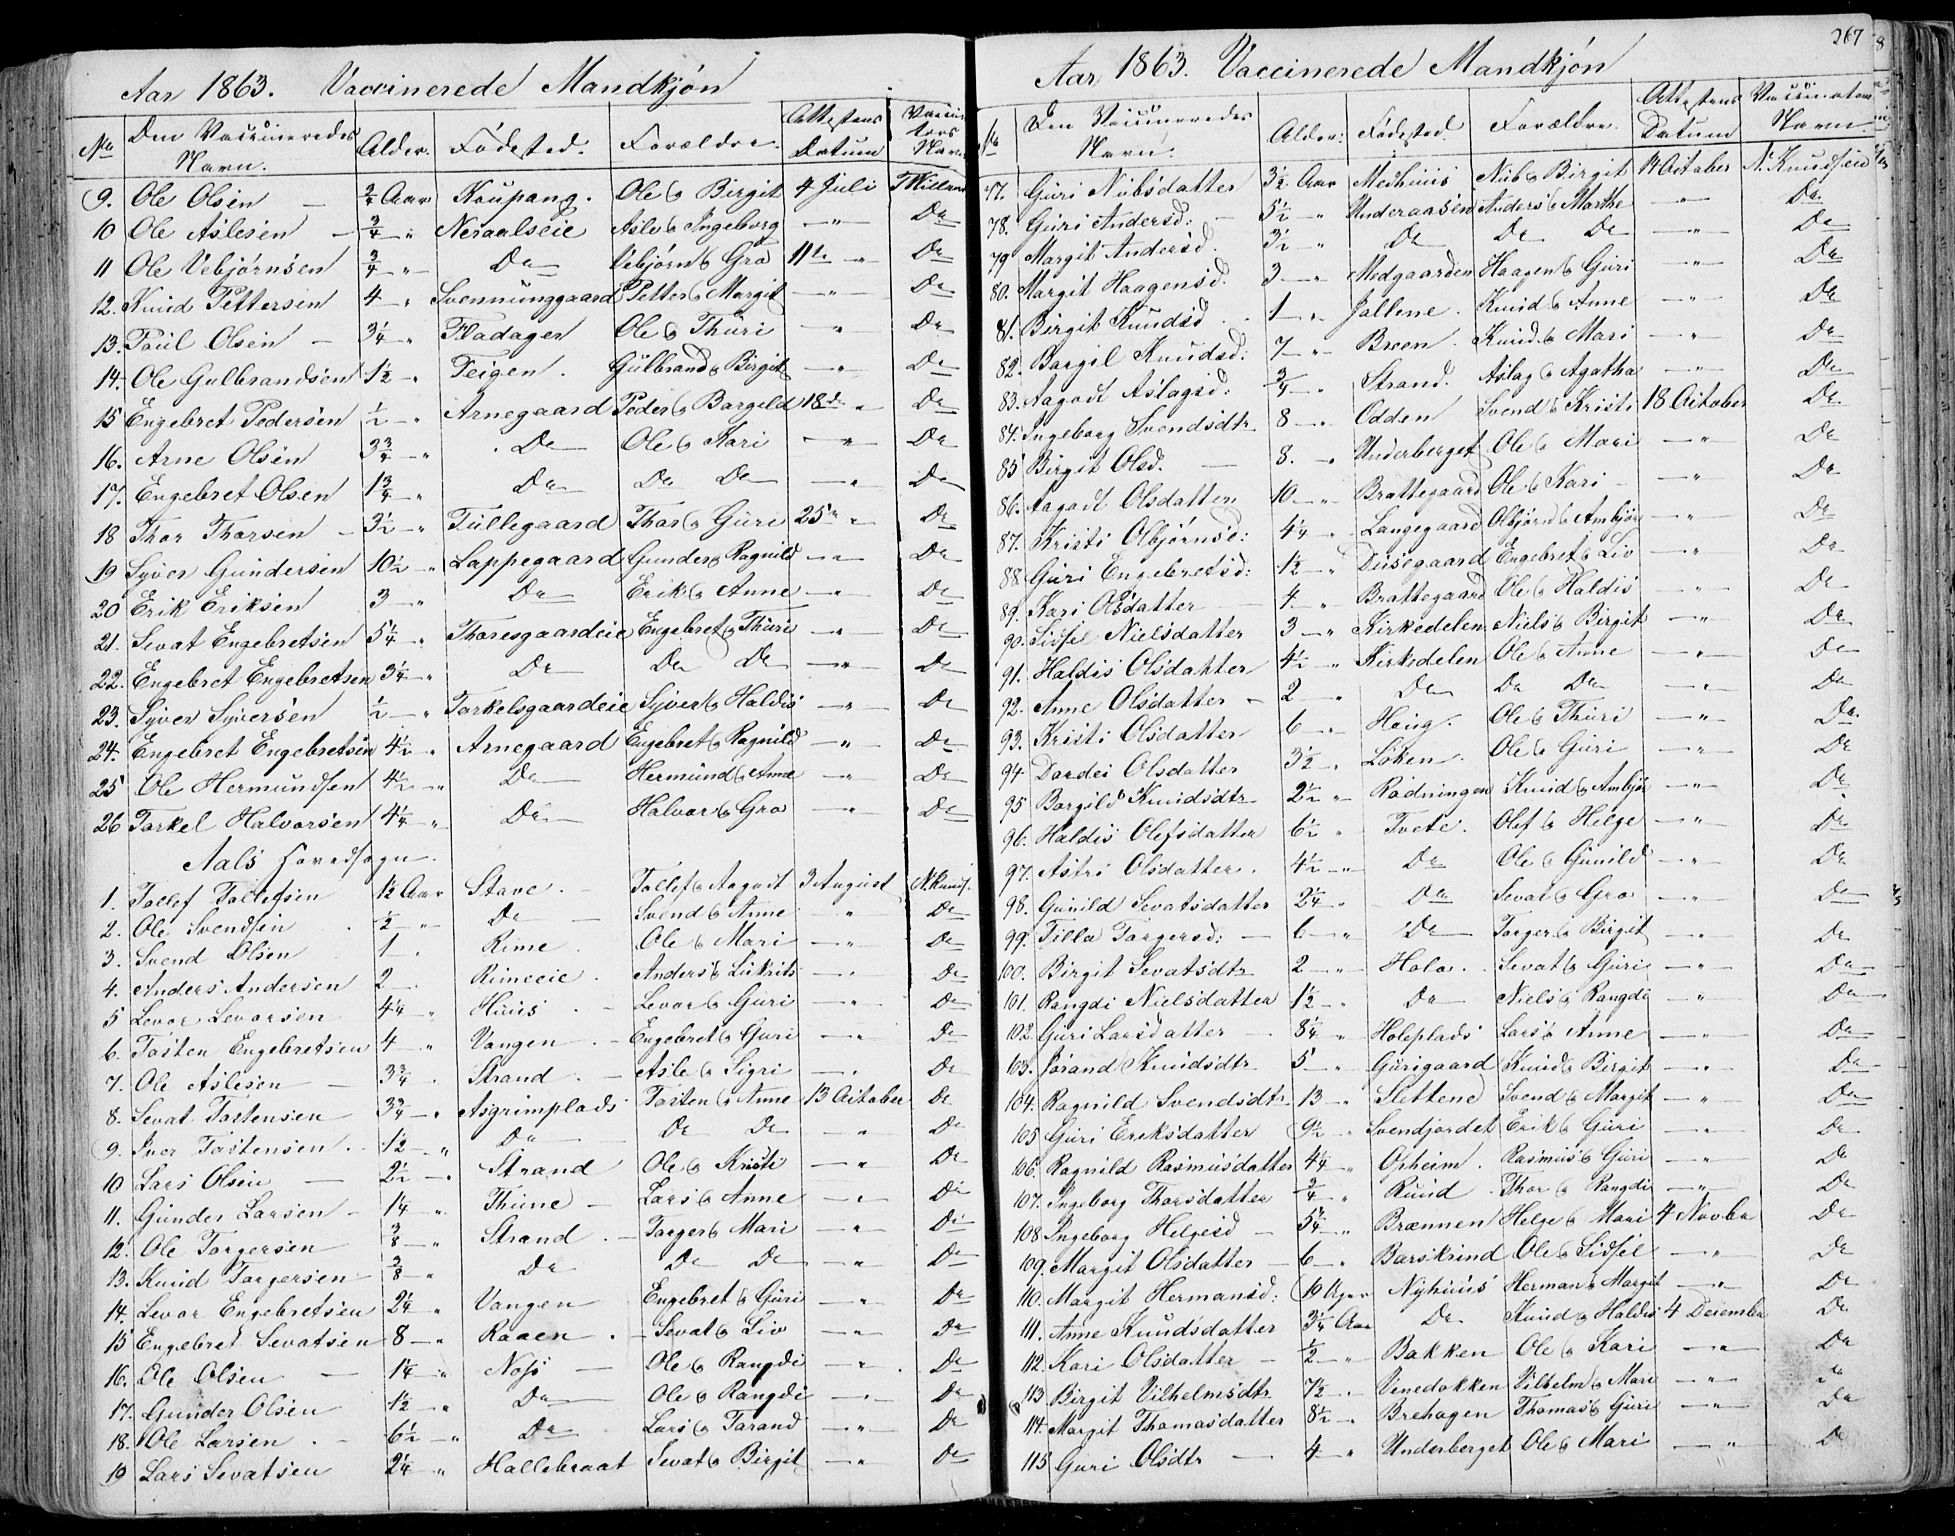 Aar 1863. Vaccinerede Mandkjøn
No Den Vaccineredes Navn. Alder. Fødested. Forældre. Attestens Datum Vaccinators Navn
9. Ole Olsen — 3/4 Aar Koupang. Ole & Birgit 4 Juli
10 Ole Aslesen — 3/4 — " Neraalseie Asle & Ingeborg — " — Do
11 Ole Vebjørnsen 3/4 — " — Do Vebjørn & Gro 11te — " Do
12. Knud Pettersen 4 — " Svennunggaard Petter & Margit — " — Do
13. Paul Olsen — 3 1/4 — " Fladagen Ole & Thuri — " — Do
14. Ole Gulbrandsen 1 1/2 — " Teigen. Gulbrand & Birgit — " — Do
15 Engebret Pedersen 1/2 — " Arnegaard Peder & Bargild 18de " Do
16. Arne Olsen 3 3/4 — " Do Ole & Kari — " — Do
17. Engebret Olsen 1 3/4 — " Do Do Do — " — Do
18 Thor Thorsen — 3 1/2 — " Tullegaard Thor & Guri 25de " Do
19 Syver Gundersen 10 1/2 — " Lappegaard Gunder & Ragnild — " — Do
20 Erik Eriksen 3 — " Do Erik & Anne — " — Do
21. Sevat Engebretsen 5 1/4 — " Thoresgaardeie Engebret & Thuri — " — Do
22. Engebret Engebretsen 3 1/4 — " Do Do Do — " — Do
23. Syver Syversen 1/2 — " Torkelsgaardeie Syver & Haldis — " — Do
24. Engebret Engebretsen 4 1/2 — " Arnegaard Engebret & Ragnild — " — Do
25 Ole Hermundsen 4 1/2 — " Do Hermund & Anne — " — Do
26 Torkel Halvorsen 4 1/4 — " Do Halvor & Gro — " — Do
Aals Hovedsogn.
1. Tollef Tollefsen 1/2 Aar Stave. — Tollef & Aagodt 3 August N. Knuds.
2. Ole Svendsen 1/2 — " — Do — Svend & Anne " Do
3. Svend Olsen 1 " Rime. Ole & Mari — " — Do
4. Anders Andersen 2 — Rimeeie. Anders & — " — Do
5 Levor Levorsen 4 1/4 " Huus. — Levor & Guri " Do
6. Tosten Engebretsen 4 " Vangen. — Engebret & Guri — " — Do
7. Ole Aslesen — 3 3/4 " Strand. — Asle & Sigri — " Do
8. Sevat Tostensen 3 3/4 — " Asgrimplads Tosten & Anne 13 October Do
9. Iver Tostensen. 1 1/2 — " Do Do Do — " — Do
10 Lars Olsen — 2 1/2 — " Strand Ole & Kristi — " — Do
11. Gunder Larsen — 1 1/4 — " Thune — Lars & Anne — " — Do
12. Ole Torgersen 3/8 — " Strand. — Torger & Mari — " — Do
13. Knud Torgersen — 3/8 — " Do Do Do — " — Do
14. Levor Engebretsen 2 1/4 — " Vangen Engebret & Guri — " — Do
15 Engebret Sevatsen 8 — " Raaen. — Sevat & Liv — " — Do
16. Ole Olsen — 1 1/4 — " Noss — Ole & Rangdi — " — Do
17. Gunder Olsen 1 1/2 — " Do Ole & Rangdi — " — Do
18. Ole Larsen. — 6 1/2 — " Do Lars & Torand — " — Do
19 Lars Sevatsen 2 1/4 — " Hallebraat Sevat & Birgit — " — Do
267
Aar 1863. Vaccinerede Mandkjøn
No Den Vaccineredes Navn. Alder. Fødested. Forældre. Attestens Datum Vaccinators Navn.
77. Guri Nubsdatter 3 1/2 Aar Medhuus Nub & Birgit 14 October N. Knudsen
78. Guri Andersd: — 5 1/2 — " Underaasen Anders & Marthe — " — Do
79 Margit Andersd. 3 1/2 — " Do Do Do — " — Do
80. Margit Haagensd. 3 — " Medgaarden Haagen & Guri — " Do
81. Birgit Knudsd.. 1 — " Jallene. Knud & Anne — " — Do
82. Bargil Knudsd: 7 — " Breen. Knud & Mari — " — Do
83. Aagodt Aslagsd: 3/4 — " Strand. Aslag & Agatha — " — Do
84. Ingeborg Svendsdtr 8 — " Odden Svend & Kristi 18 October Do
85 Birgit Olsd. — 8. — " Underberget Ole & Mari — " — Do
86. Aagodt Olsdatter 10 — " Brattegaard Ole & Kari — " — Do
87. Kristi Olbjørnsd: 4 1/4 — " Langegaard Olbjørn & Ambjør — " — Do
88 Guri Engebretsd: 1 1/2 — " Dusegaard Engebret & Liv — " — Do
89. Kari Olsdatter — 4 — " Brattegaard Ole & Haldis — " — Do
90. Sidsel Nielsdatter 3 — " Kirkedelen Niels & Birgit — " — Do
91. Haldis Olsdatter 4 1/2 — " Kirkedelen Ole & Anne — " — Do
92. Anne Olsdatter — 2 — " Do Do Do — " — Do
93. Kristi Olsdatter 6 — " Houg. Ole & Thuri — " — Do
94 Dordei Olsdatter 3 1/2 — " Løken. Ole & Guri — " — Do
95 Borgild Knudsdtr 2 1/2 — " Rødningen Knud & Ambjør — " — Do
96. Haldis Olefsdatter 6 1/2 — " Tvete. Olef & Helge — " — Do
97. Astri Olsdatter. 4 1/2 — " Do Ole & Gunild — " — Do
98. Gunild Sevatsdatter 2 1/4 — " Do Sevat & Gro — " — Do
99. Tilla Torgersd: — 6 — " Do Torger & Birgit — " — Do
100. Birgit Sevatsdtr 2 — " Holo. Sevat & Guri — " — Do
101. Rangdi Nielsdatter 1 1/2 — " Do Niels & Rangdi — " — Do
102. Guri Larsdatter — 8 1/4 — " Holeplads Lars & Anne — " — Do
103. Jørand Knudsdtr 5 — " Gurigaard Knud & Birgit — " — Do
104. Ragnild Svendsdtr 13 — " Slettene Svend & Margit — " — Do
105 Guri Eriksdatter 9 1/2 — " Svendjordet Erik & Guri — " — Do
106. Ragnild Rasmusdatter 4 1/4 — " Opheim. Rasmus & Guri — " — Do
107. Ingeborg Thorsdatter 3/4 — " Ruud Thor & Rangdi — " — Do
108 Ingeborg Helgesd — 5 3/4 — " Brænnen Helge & Mari 4 Novbr Do
109. Margit Olsdatter — 6 — " Barskrind Ole & Sidsel — " — Do
110. Margit Hermansd: 10 Uger Nyhuus Herman & Margit — " — Do
111. Anne Knudsdatter 3 1/4 Aar Do Knud & Haldis 4 December Do
112. Kari Olsdatter — 1/2 — " Bakken Ole & Kari — " — Do
113 Birgit Vilhelmsdtr 7 1/2 — " Venedokken Vilhelm & Mari — " — Do
114. Margit Thomasdatter 8 1/2 — " Brehagen Thomas & Guri — " — Do
115 Guri Olsdtr — 4 " Underberget Ole & Mari — " — Do